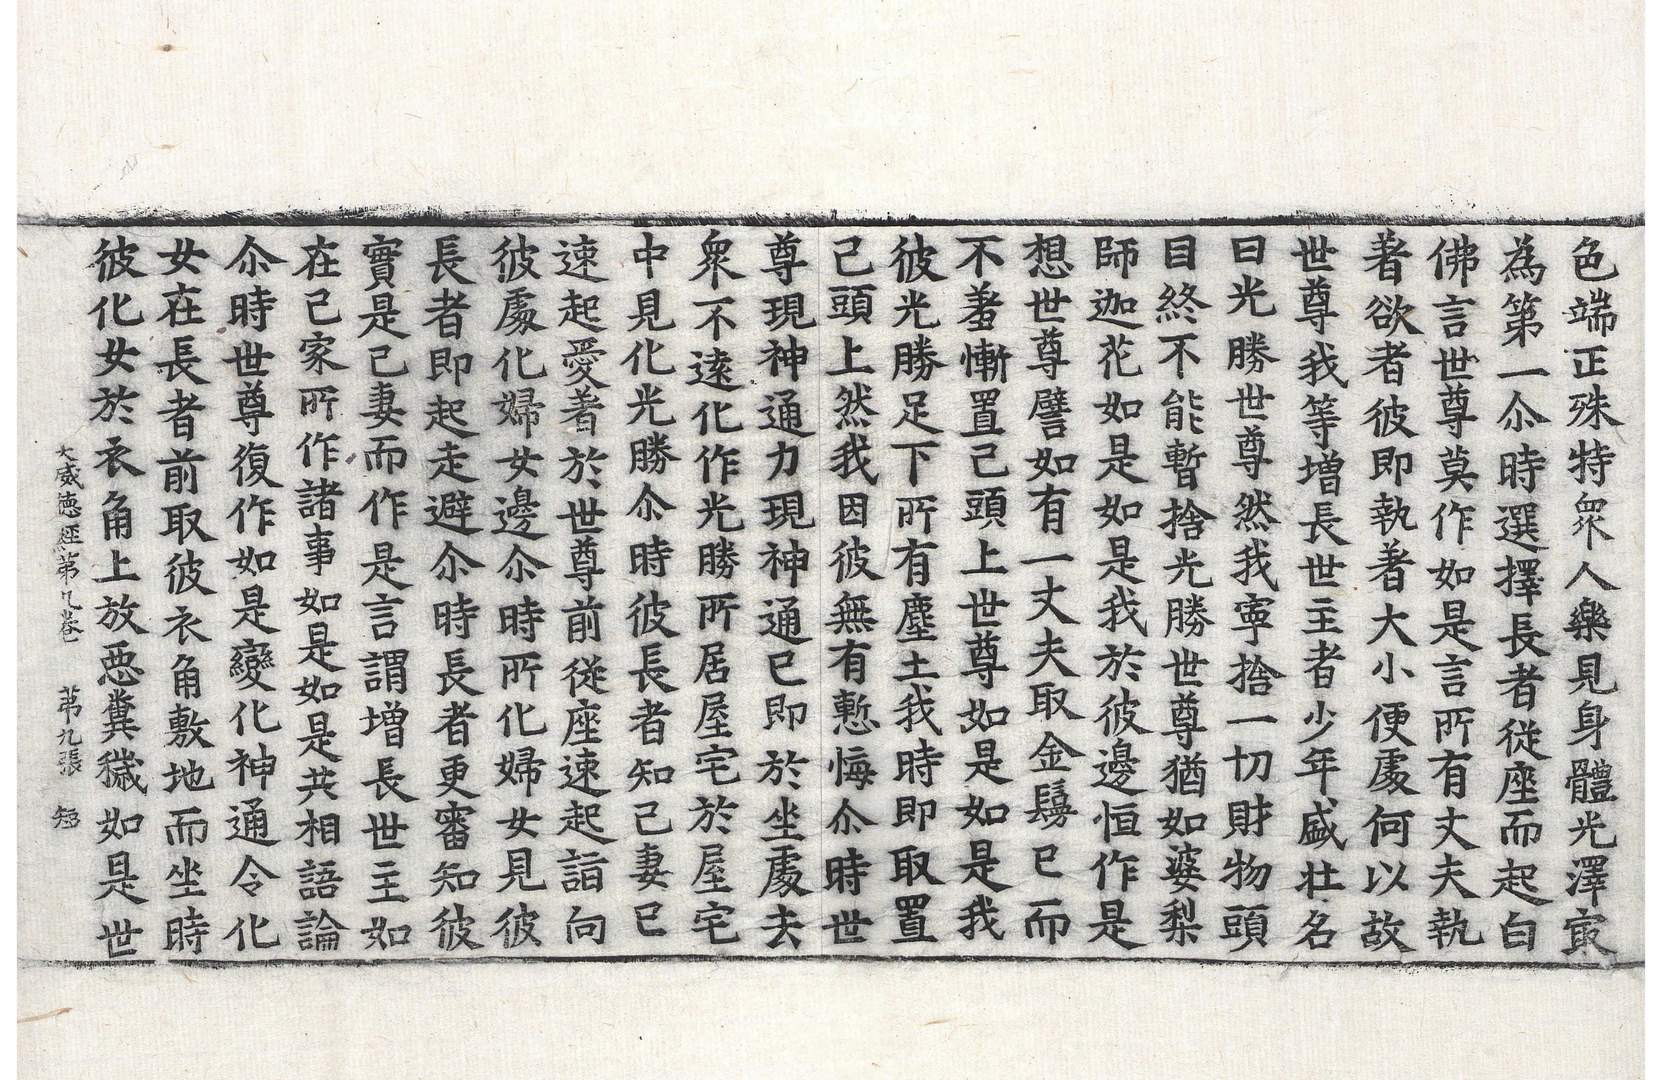 色端正殊特衆人樂見身體光澤㝡
為第一尒時選擇長者従座而起白
佛言世尊莫作如是言所有丈夫執
著欲者彼即執著大小便處何以故
世尊我等增長世主者少年盛壯名
曰光勝世尊然我寧捨一切財物頭
目終不能暫捨光勝世尊猶如婆梨
師迦花如是如是我於彼邊恒作是
想世尊譬如有一丈夫取金鬘已而
不羞慚置己頭上世尊如是如是我
彼光勝足下所有塵土我時即取置
己頭上然我因彼無有慙悔尒時世
尊現神通力現神通已即於坐處去
衆不逺化作光勝所居屋宅於屋宅
中見化光勝尒時彼長者知己妻已
速起愛著於世尊前従座速起詣向
彼處化婦女邊尒時所化婦女見彼
長者即起走避尒時長者更審知彼
實是己妻而作是言謂增長世主如
在己家所作諸事如是如是共相語論
尒時世尊復作如是變化神通令化
女在長者前取彼衣角敷地而坐時
彼化女於衣角上放惡糞穢如是世
大威德經第九卷 第九張